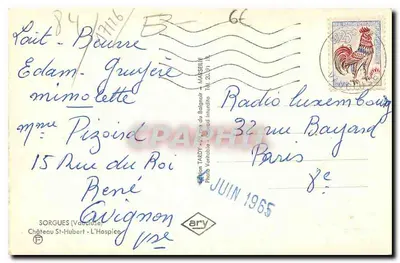 84
17116
6E
Lait - Beurre
Edam - Gruyère
mimolette
Mme Pizoird
15 Rue du Roi
René
Avignon
Vse
SORGUES (Vaucluse)
Château St-Hubert - L'Hospice
ary
MARSEILLE
Radio Luxembourg
32 rue Bayard
Paris
8e
JUIN 1965
CPARAMA